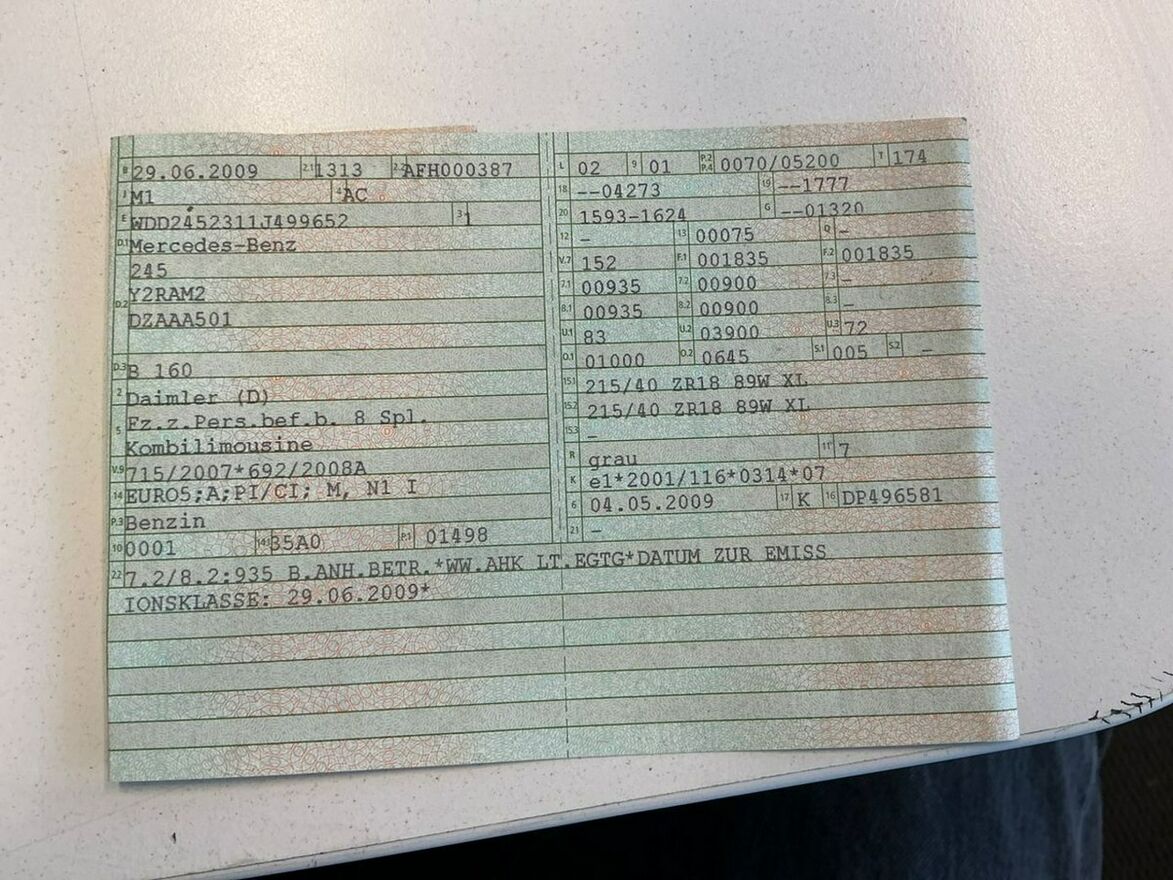 B 29.06.2009 2.1 1313 2.2 AFH000387
J M1 4 AC
E WDD2452311J499652 3 1
D.1 Mercedes-Benz
245
D.2 Y2RAM2
DZAAA501
D.3 B 160
2 Daimler (D)
5 Fz.z.Pers.bef.b. 8 Spl.
Kombilimousine
V.9 715/2007*692/2008A
14 EURO5;A;PI/CI; M, N1 I
P.3 Benzin
10 0001 14.1 35A0 P.1 01498
L 02 9 01 P.2 P.4 0070/05200 T 174
18 --04273 19 --1777
20 1593-1624 G --01320
12 - 13 00075 Q -
V.7 152 F.1 001835 F.2 001835
7.1 00935 7.2 00900 7.3 -
8.1 00935 8.2 00900 8.3 -
U.1 83 U.2 03900 U.3 72
O.1 01000 O.2 0645 S.1 005 S.2 -
15.1 215/40 ZR18 89W XL
15.2 215/40 ZR18 89W XL
15.3 -
R grau 11 7
K e1*2001/116*0314*07
6 04.05.2009 17 K 16 DP496581
21 -
22 7.2/8.2:935 B.ANH.BETR.*WW.AHK LT.EGTG*DATUM ZUR EMISS
IONSKLASSE: 29.06.2009*